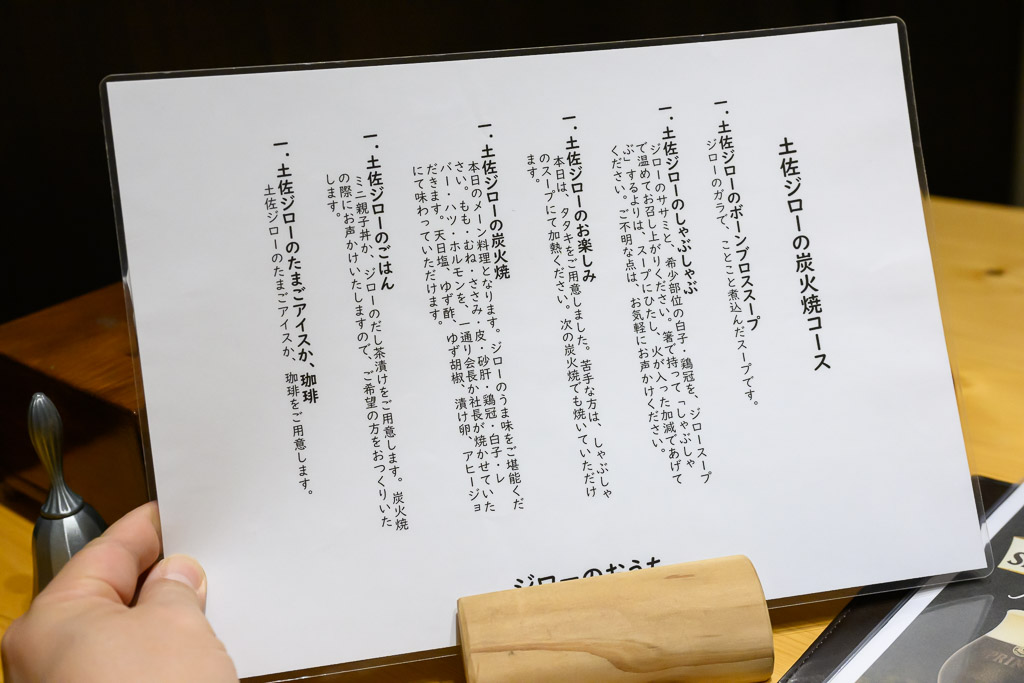 土佐ジローの炭火焼コース
一．土佐ジローのボーンブロススープ
ジローのガラで、ことこと煮込んだスープです。
一．土佐ジローのしゃぶしゃぶ
ジローのササミと、希少部位の白子・鶏冠を、ジロースープ
で温めてお召し上がりください。箸で持って「しゃぶしゃ
ぶ」するよりは、スープにひたし、火が入った加減であげて
ください。ご不明な点は、お気軽にお声かけください。
一．土佐ジローのお楽しみ
本日は、タタキをご用意しました。苦手な方は、しゃぶしゃ
のスープにて加熱ください。次の炭火焼でも焼いていただけ
ます。
一．土佐ジローの炭火焼
本日のメーン料理となります。ジローのうま味をご堪能くだ
さい。もも・むね・ささみ・皮・砂肝・鶏冠・白子・レ
バー・ハツ・ホルモンを、一通り会長か社長が焼かせていた
だきます。天日塩、ゆず酢、ゆず胡椒、漬け卵、アヒージョ
にて味わっていただけます。
一．土佐ジローのごはん
ミニ親子丼か、ジローのだし茶漬けをご用意します。炭火焼
の際にお声かけいたしますので、ご希望の方をおつくりいた
します。
一．土佐ジローのたまごアイスか、珈琲
土佐ジローのたまごアイスか、珈琲をご用意します。
ジローのおうち